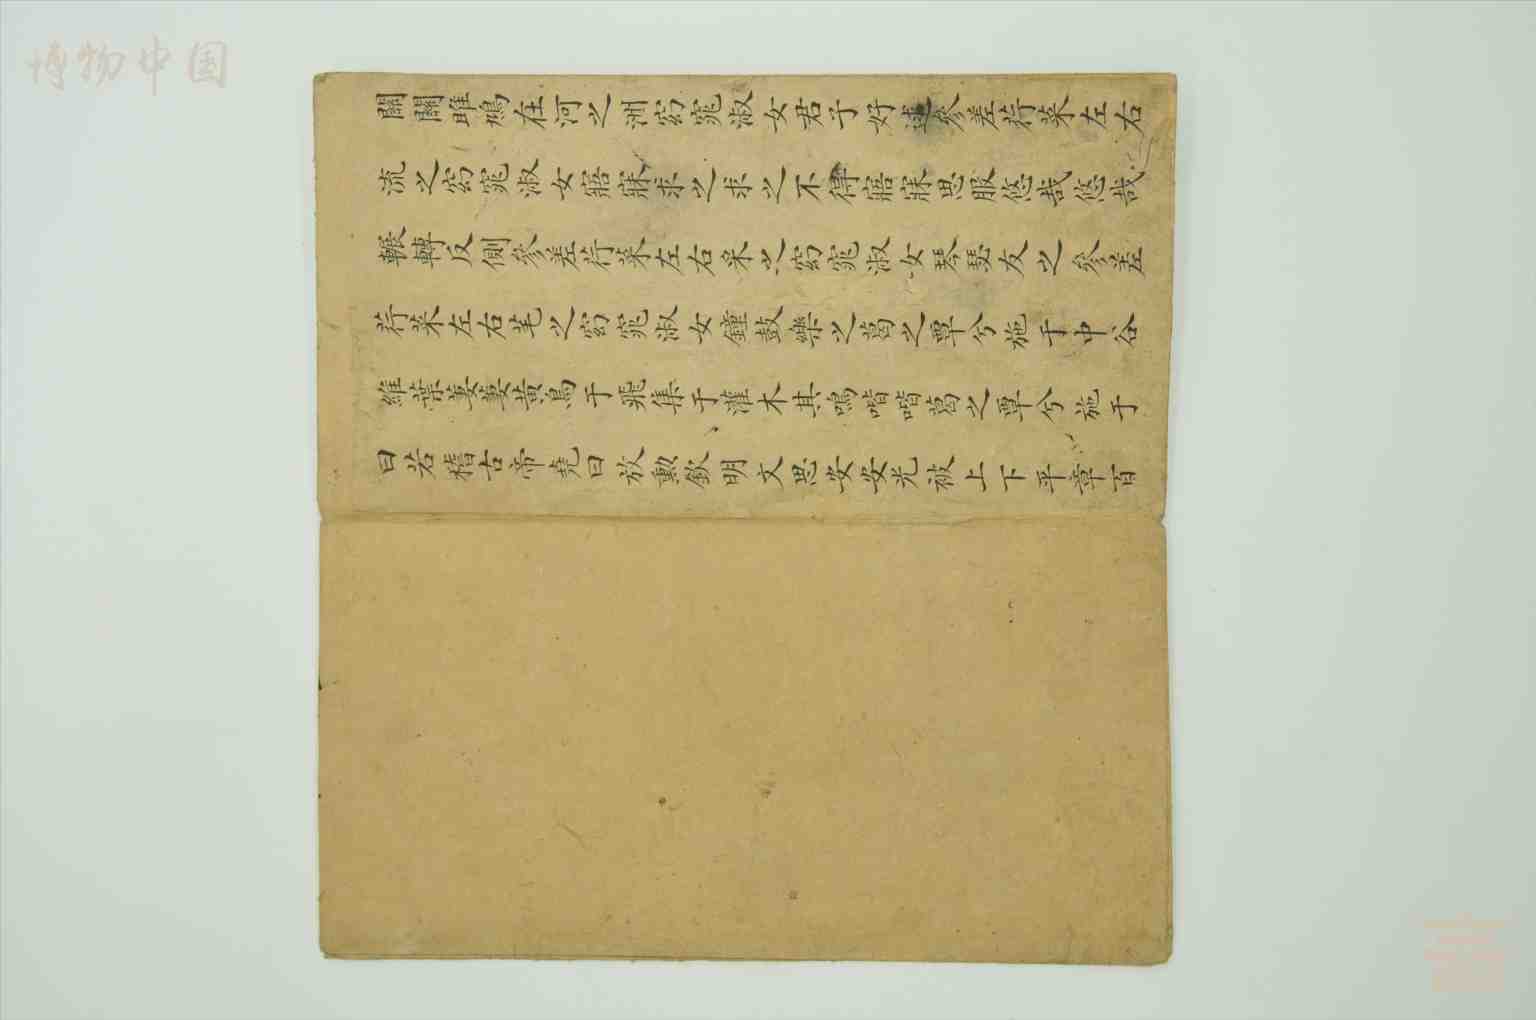 博物中国
關關雎鳩在河之洲窈窕淑女君子好逑參差荇菜左右
流之窈窕淑女寤寐求之求之不得寤寐思服悠哉悠哉
輾轉反側參差荇菜左右采之窈窕淑女琴瑟友之參差
荇菜左右芼之窈窕淑女鐘鼓樂之葛之覃兮施于中谷
維葉萋萋黃鳥于飛集于灌木其鳴喈喈葛之覃兮施于
曰若稽古帝堯曰放勳欽明文思安安光被上下平章百